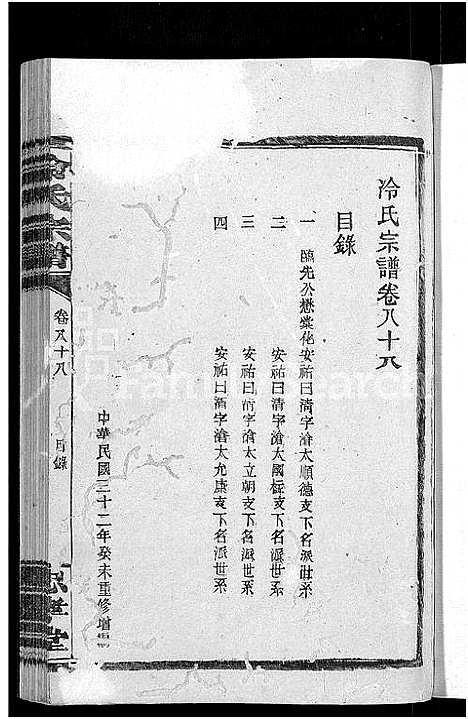 冷氏宗譜卷八十八
目錄
一 臨先公懋棠佬安祐曰清字滄太順德支下名派世系
二 安祐曰清字滄太國楨支下名派世系
三 安祐曰清字滄太立朝支下名派世系
四 安祐曰清字滄太允康支下名派世系
中華民國三十二年癸未重修增
冷氏宗譜 卷八十八 目錄 忠孝堂